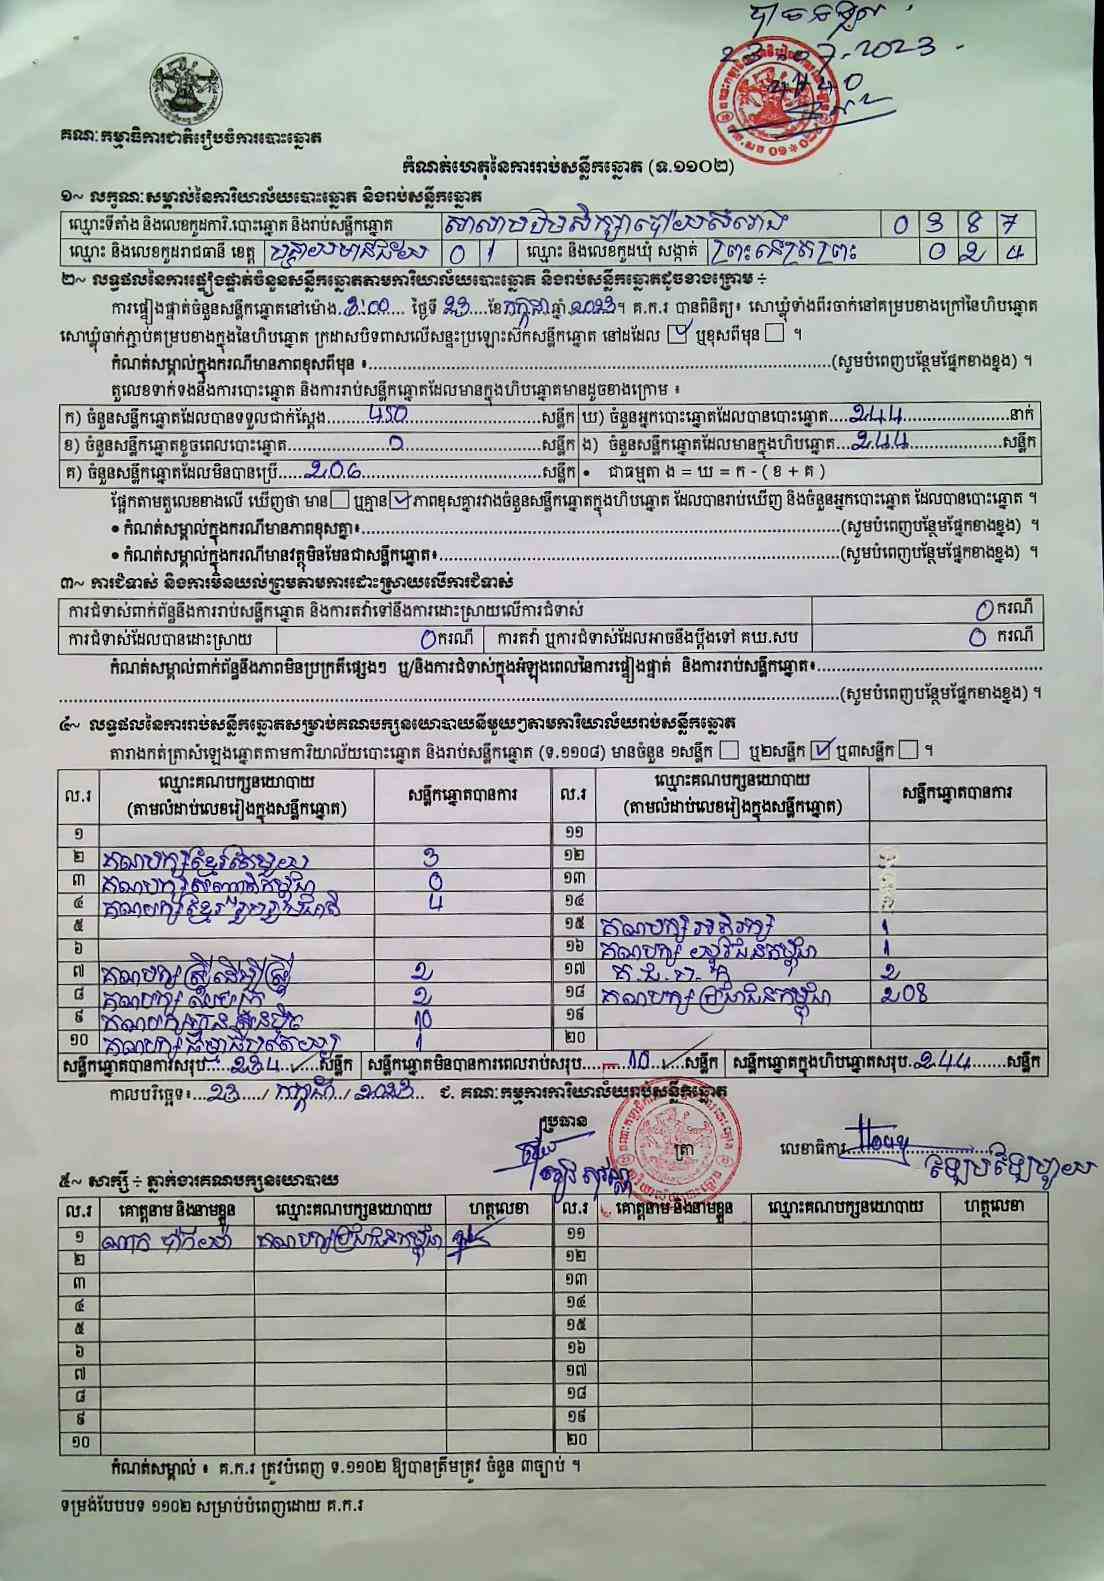 23.07.2023
គណៈកម្មាធិការជាតិរៀបចំការបោះឆ្នោត
កំណត់ហេតុនៃការរាប់សន្លឹកឆ្នោត (ទ.១១០២)
១~ លក្ខណៈសម្គាល់នៃការិយាល័យបោះឆ្នោត និងរាប់សន្លឹកឆ្នោត
ឈ្មោះទីតាំង និងលេខកូដការិ.បោះឆ្នោត និងរាប់សន្លឹកឆ្នោត សាលាបឋមសិក្សាប៉ោយសំរោង 0 3 8 7
ឈ្មោះ និងលេខកូដរាជធានី ខេត្ត បន្ទាយមានជ័យ 0 1 ឈ្មោះ និងលេខកូដឃុំ សង្កាត់ ព្រះនេត្រព្រះ 0 2 4
២~ លទ្ធផលនៃការផ្ទៀងផ្ទាត់ចំនួនសន្លឹកឆ្នោតតាមការិយាល័យបោះឆ្នោត និងរាប់សន្លឹកឆ្នោតដូចខាងក្រោម ÷
ការផ្ទៀងផ្ទាត់ចំនួនសន្លឹកឆ្នោតនៅម៉ោង 3:00 ថ្ងៃទី 23 ខែ កក្កដា ឆ្នាំ 2023។ គ.ក.រ បានពិនិត្យ៖ សោឃ្លុំទាំងពីរចាក់នៅគម្របខាងក្រៅនៃហិបឆ្នោត
សោឃ្លុំចាក់ភ្ជាប់គម្របខាងក្នុងនៃហិបឆ្នោត ក្រដាសបិទពាសលើសន្ទះប្រឡោះស៊កសន្លឹកឆ្នោត នៅដដែល ☑ ឬខុសពីមុន ☐ ។
កំណត់សម្គាល់ក្នុងករណីមានភាពខុសពីមុន ៖ (សូមបំពេញបន្ថែមផ្នែកខាងខ្នង) ។
តួលេខទាក់ទងនឹងការបោះឆ្នោត និងការរាប់សន្លឹកឆ្នោតដែលមានក្នុងហិបឆ្នោតមានដូចខាងក្រោម ៖
ក) ចំនួនសន្លឹកឆ្នោតដែលបានទទួលជាក់ស្តែង 450 សន្លឹក ឃ) ចំនួនអ្នកបោះឆ្នោតដែលបានបោះឆ្នោត 244 នាក់
ខ) ចំនួនសន្លឹកឆ្នោតខូចពេលបោះឆ្នោត 0 សន្លឹក ង) ចំនួនសន្លឹកឆ្នោតដែលមានក្នុងហិបឆ្នោត 244 សន្លឹក
គ) ចំនួនសន្លឹកឆ្នោតដែលមិនបានប្រើ 206 សន្លឹក • ជាធម្មតា ង = ឃ = ក - ( ខ + គ )
ផ្អែកតាមតួលេខខាងលើ ឃើញថា មាន ☐ ឬគ្មាន ☑ ភាពខុសគ្នារវាងចំនួនសន្លឹកឆ្នោតក្នុងហិបឆ្នោត ដែលបានរាប់ឃើញ និងចំនួនអ្នកបោះឆ្នោត ដែលបានបោះឆ្នោត ។
• កំណត់សម្គាល់ក្នុងករណីមានភាពខុសគ្នា៖ (សូមបំពេញបន្ថែមផ្នែកខាងខ្នង) ។
• កំណត់សម្គាល់ក្នុងករណីមានវត្ថុមិនមែនជាសន្លឹកឆ្នោត៖ (សូមបំពេញបន្ថែមផ្នែកខាងខ្នង) ។
៣~ ការជំទាស់ និងការមិនយល់ព្រមតាមការដោះស្រាយលើការជំទាស់
ការជំទាស់ពាក់ព័ន្ធនឹងការរាប់សន្លឹកឆ្នោត និងការតវ៉ាទៅនឹងការដោះស្រាយលើការជំទាស់ 0 ករណី
ការជំទាស់ដែលបានដោះស្រាយ 0 ករណី ការតវ៉ា ឬការជំទាស់ដែលអាចនឹងប្តឹងទៅ គឃ.សប 0 ករណី
កំណត់សម្គាល់ពាក់ព័ន្ធនឹងភាពមិនប្រក្រតីផ្សេងៗ ឬ/និងការជំទាស់ក្នុងអំឡុងពេលនៃការផ្ទៀងផ្ទាត់ និងការរាប់សន្លឹកឆ្នោត៖
(សូមបំពេញបន្ថែមផ្នែកខាងខ្នង) ។
៤~ លទ្ធផលនៃការរាប់សន្លឹកឆ្នោតសម្រាប់គណបក្សនយោបាយនីមួយៗតាមការិយាល័យរាប់សន្លឹកឆ្នោត
តារាងកត់ត្រាសំឡេងឆ្នោតតាមការិយាល័យបោះឆ្នោត និងរាប់សន្លឹកឆ្នោត (ទ.១១០៨) មានចំនួន ១សន្លឹក ☐ ឬ២សន្លឹក ☑ ឬ៣សន្លឹក ☐ ។
ល.រ ឈ្មោះគណបក្សនយោបាយ (តាមលំដាប់លេខរៀងក្នុងសន្លឹកឆ្នោត) សន្លឹកឆ្នោតបានការ ល.រ ឈ្មោះគណបក្សនយោបាយ (តាមលំដាប់លេខរៀងក្នុងសន្លឹកឆ្នោត) សន្លឹកឆ្នោតបានការ
១ ១១
២ គណបក្សខ្មែរតែមួយ 3 ១២
៣ គណបក្ស 0 ១៣
៤ គណបក្សខ្មែររួបរួមជាតិ 4 ១៤
៥ ១៥ គណបក្ស 1
៦ ១៦ គណបក្ស យុវជនកម្ពុជា 1
៧ គណបក្សស្ត្រីដើម្បីស្ត្រី 2 ១៧ 2
៨ គណបក្ស 2 ១៨ គណបក្សប្រជាជនកម្ពុជា 208
៩ គណបក្ស 10 ១៩
១០ គណបក្សធម្មាធិបតេយ្យ 1 ២០
សន្លឹកឆ្នោតបានការសរុប 234 សន្លឹក សន្លឹកឆ្នោតមិនបានការពេលរាប់សរុប 10 សន្លឹក សន្លឹកឆ្នោតក្នុងហិបឆ្នោតសរុប 244 សន្លឹក
កាលបរិច្ឆេទ៖ 23 / កក្កដា / 2023 ជ. គណៈកម្មការការិយាល័យរាប់សន្លឹកឆ្នោត
ប្រធាន
ត្រា
លេខាធិការ
៥~ សាក្សី ÷ ភ្នាក់ងារគណបក្សនយោបាយ
ល.រ គោត្តនាម និងនាមខ្លួន ឈ្មោះគណបក្សនយោបាយ ហត្ថលេខា ល.រ គោត្តនាម និងនាមខ្លួន ឈ្មោះគណបក្សនយោបាយ ហត្ថលេខា
១ គណបក្សប្រជាជនកម្ពុជា ១១
២ ១២
៣ ១៣
៤ ១៤
៥ ១៥
៦ ១៦
៧ ១៧
៨ ១៨
៩ ១៩
១០ ២០
កំណត់សម្គាល់ ៖ គ.ក.រ ត្រូវបំពេញ ទ.១១០២ ឱ្យបានត្រឹមត្រូវ ចំនួន ៣ច្បាប់ ។
ទម្រង់បែបបទ ១១០២ សម្រាប់បំពេញដោយ គ.ក.រ